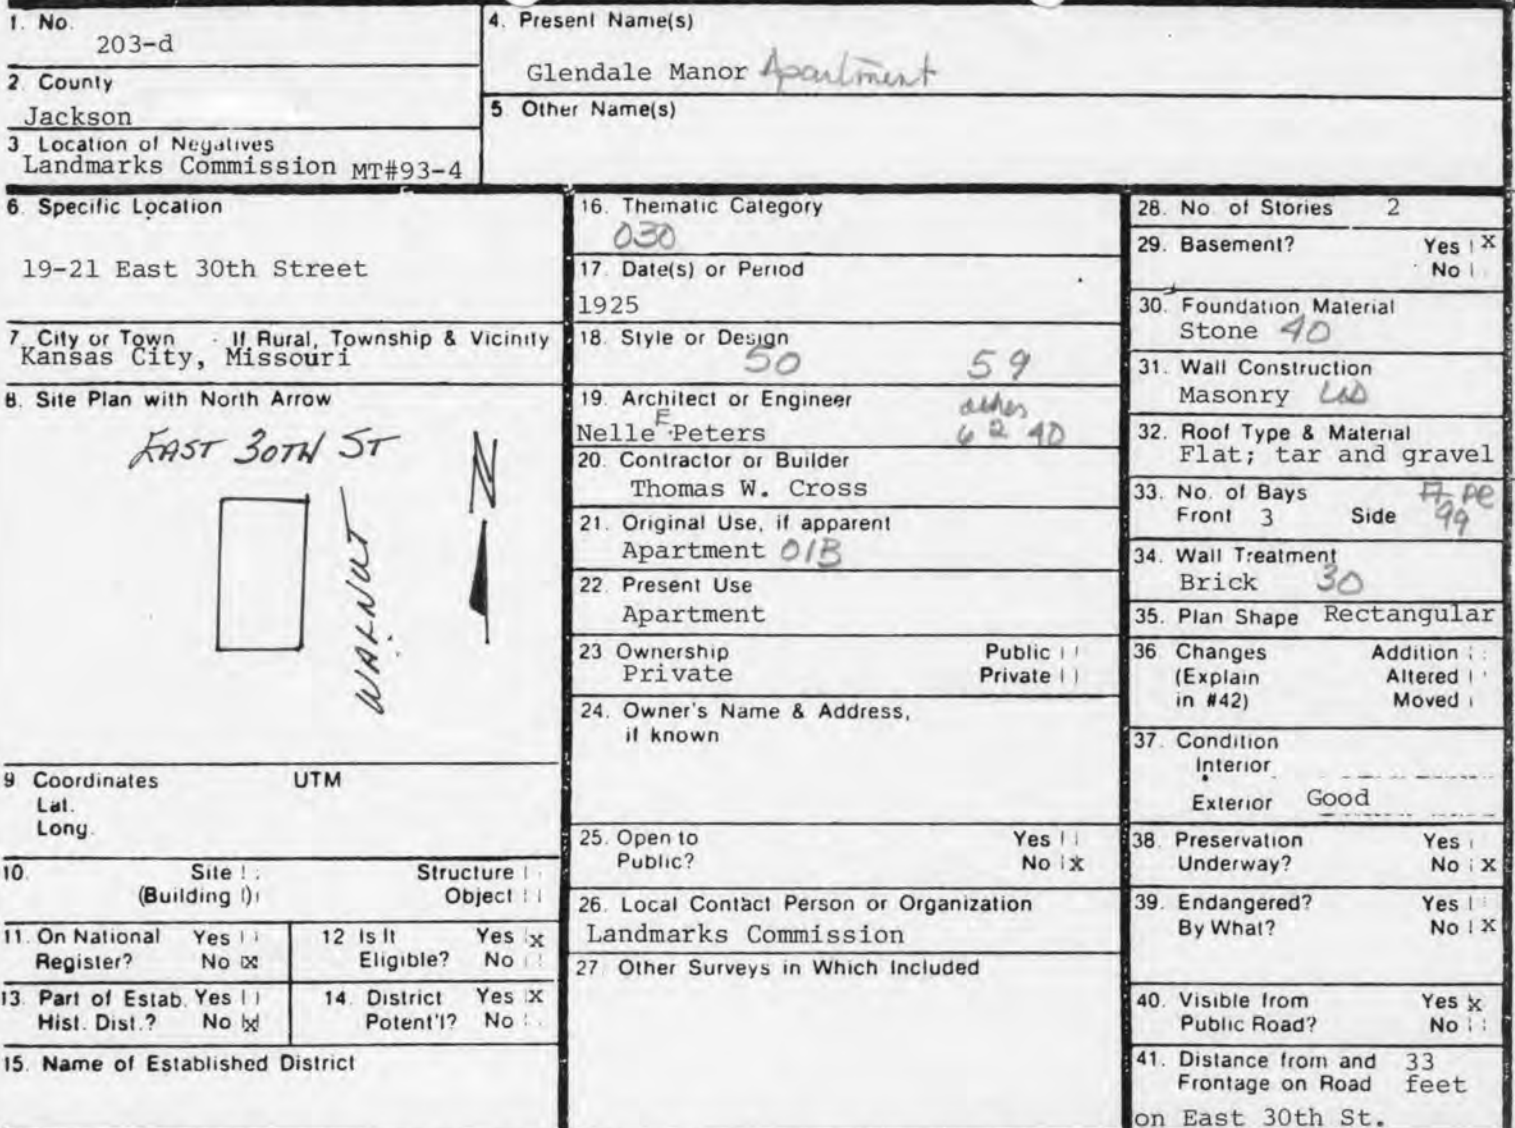 1. No.
203-d
2 County
Jackson
3 Location of Negatives
Landmarks Commission MT#93-4
4. Present Name(s)
Glendale Manor Apartment
5 Other Name(s)
6. Specific Location
19-21 East 30th Street
7 City or Town If Rural, Township & Vicinity
Kansas City, Missouri
8. Site Plan with North Arrow
EAST 30TH ST
N
WALNUT
9 Coordinates UTM
Lat.
Long.
10. Site Structure
(Building) Object
11. On National Yes
Register? No x
12 Is It Yes x
Eligible? No
13. Part of Estab. Yes
Hist. Dist.? No x
14. District Yes x
Potent'l? No
15. Name of Established District
16. Thematic Category
030
17. Date(s) or Period
1925
18. Style or Design
50 59
19. Architect or Engineer
Nelle E. Peters
6 2 40
20. Contractor or Builder
Thomas W. Cross
21. Original Use, if apparent
Apartment 01B
22. Present Use
Apartment
23 Ownership Public
Private Private
24. Owner's Name & Address,
if known
25. Open to Yes
Public? No x
26. Local Contact Person or Organization
Landmarks Commission
27. Other Surveys in Which Included
28. No. of Stories 2
29. Basement? Yes x
No
30. Foundation Material
Stone 40
31. Wall Construction
Masonry
32. Roof Type & Material
Flat; tar and gravel
33. No. of Bays
Front 3 Side 99
34. Wall Treatment
Brick 30
35. Plan Shape Rectangular
36 Changes Addition
(Explain Altered
in #42) Moved
37. Condition
Interior
Exterior Good
38. Preservation Yes
Underway? No x
39. Endangered? Yes
By What? No x
40. Visible from Yes x
Public Road? No
41. Distance from and 33
Frontage on Road feet
on East 30th St.